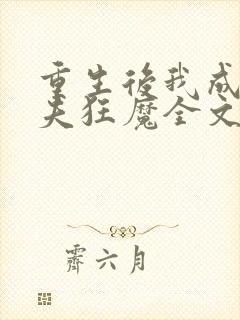 重生後我成
夫狂魔全文
霽六月